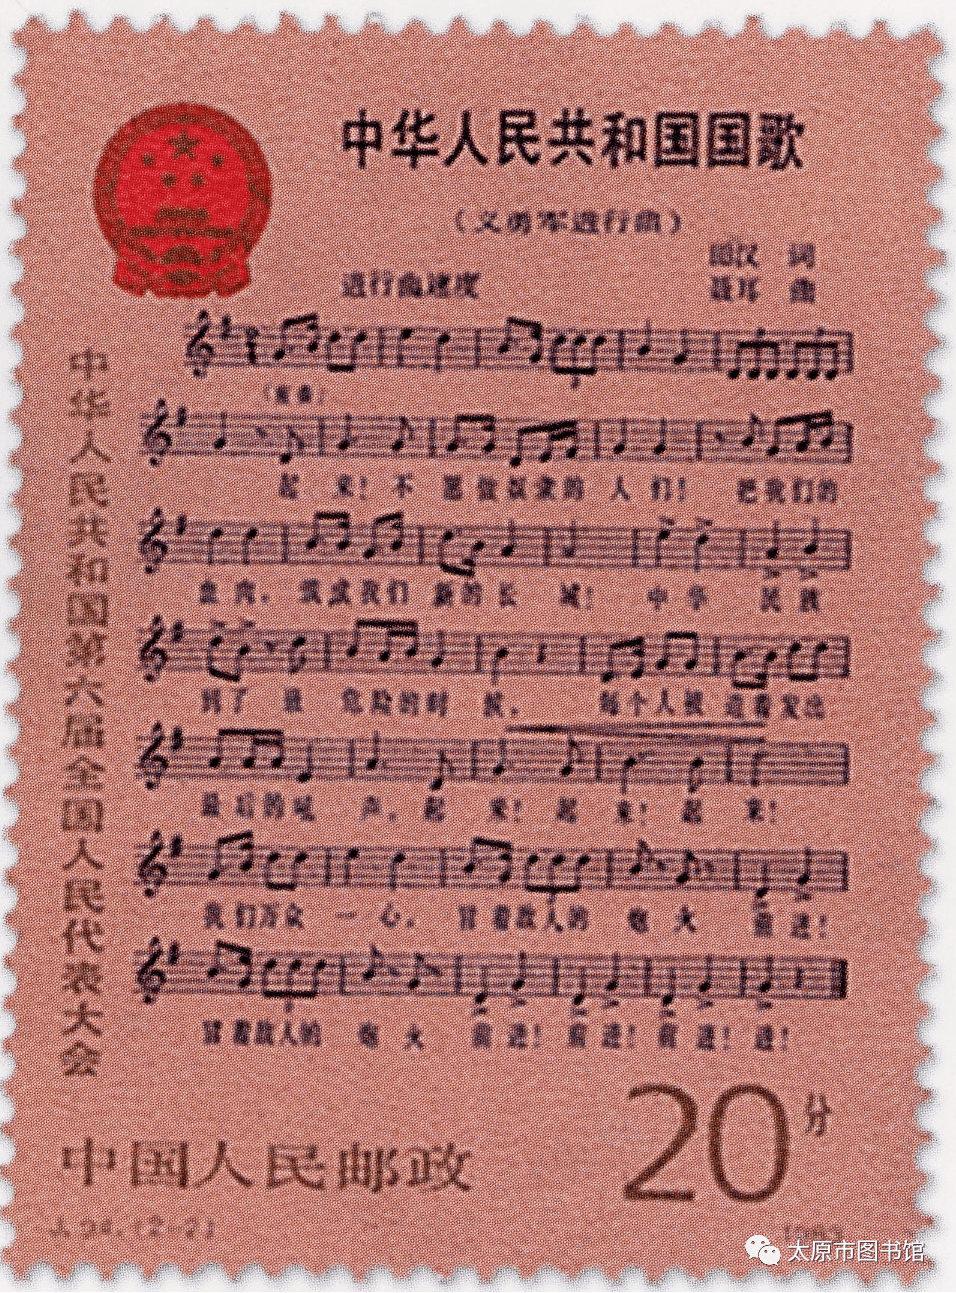 中华人民共和国国歌
（义勇军进行曲）
田汉 词
进行曲速度
聂耳 曲
（前奏）
起 来！不 愿做奴隶的 人 们！ 把我们的
血 肉，筑成我们 新的长 城！ 中 华 民 族
到了 最 危险的时 候， 每个人被 迫着发出
最后的吼 声。起 来！ 起 来！ 起 来！
我们万众 一 心，冒着敌人的 炮 火 前 进！
冒着敌人的 炮 火 前 进！前 进！前 进！进！
中华人民共和国第六届全国人民代表大会
20分
中国人民邮政
J.94.(2-2)
1983
太原市图书馆